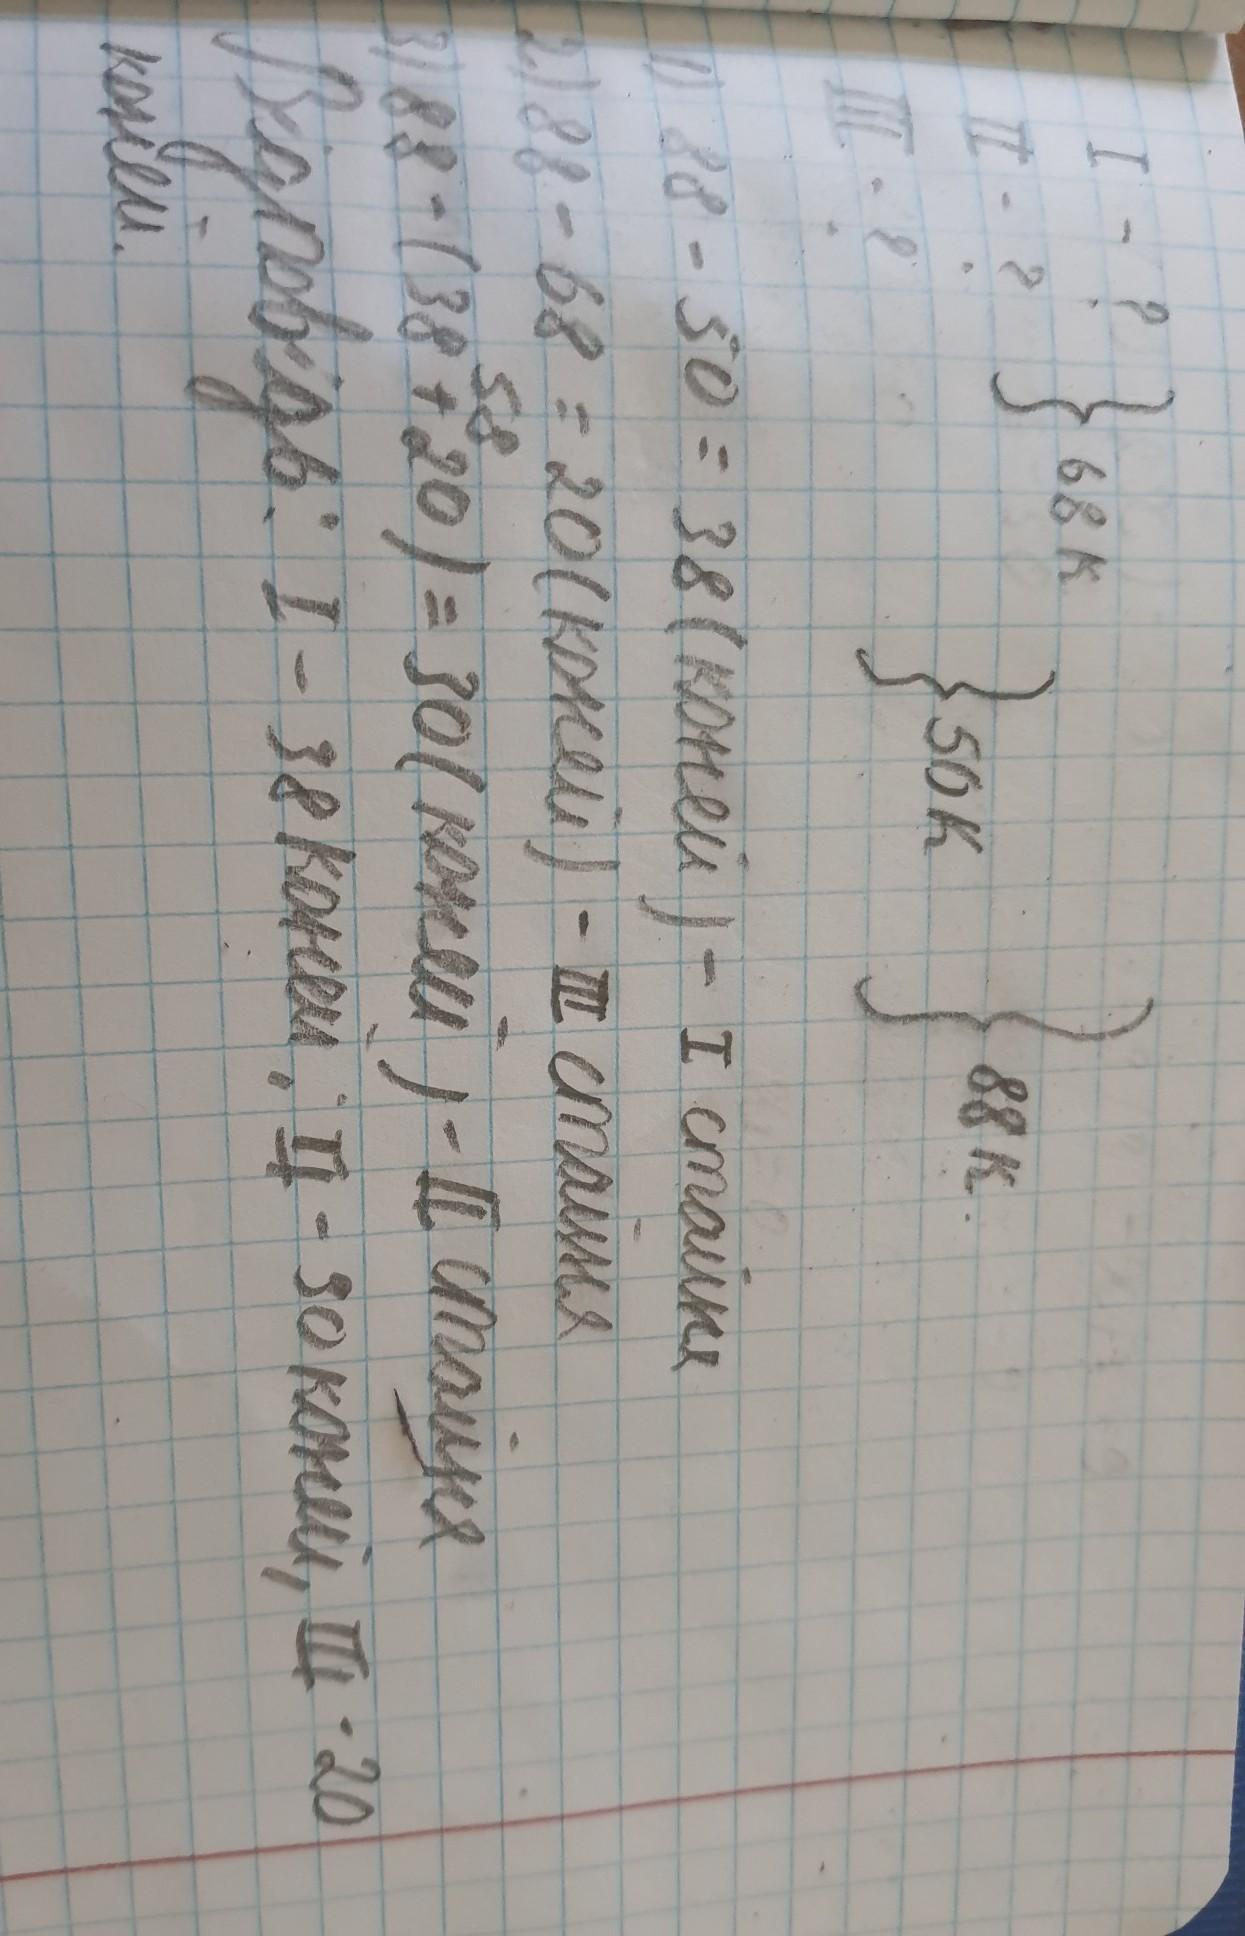 I - ? } 68 к
II - ? } 50 к } 88 к.
III - ?
1) 88 - 50 = 38 (коней) - I стайня
2) 88 - 68 = 20 (коней) - III стайня
58
3) 88 - (38 + 20) = 30 (коней) - II стайня
Відповідь: I - 38 коней, II - 30 коней, III - 20
коней.